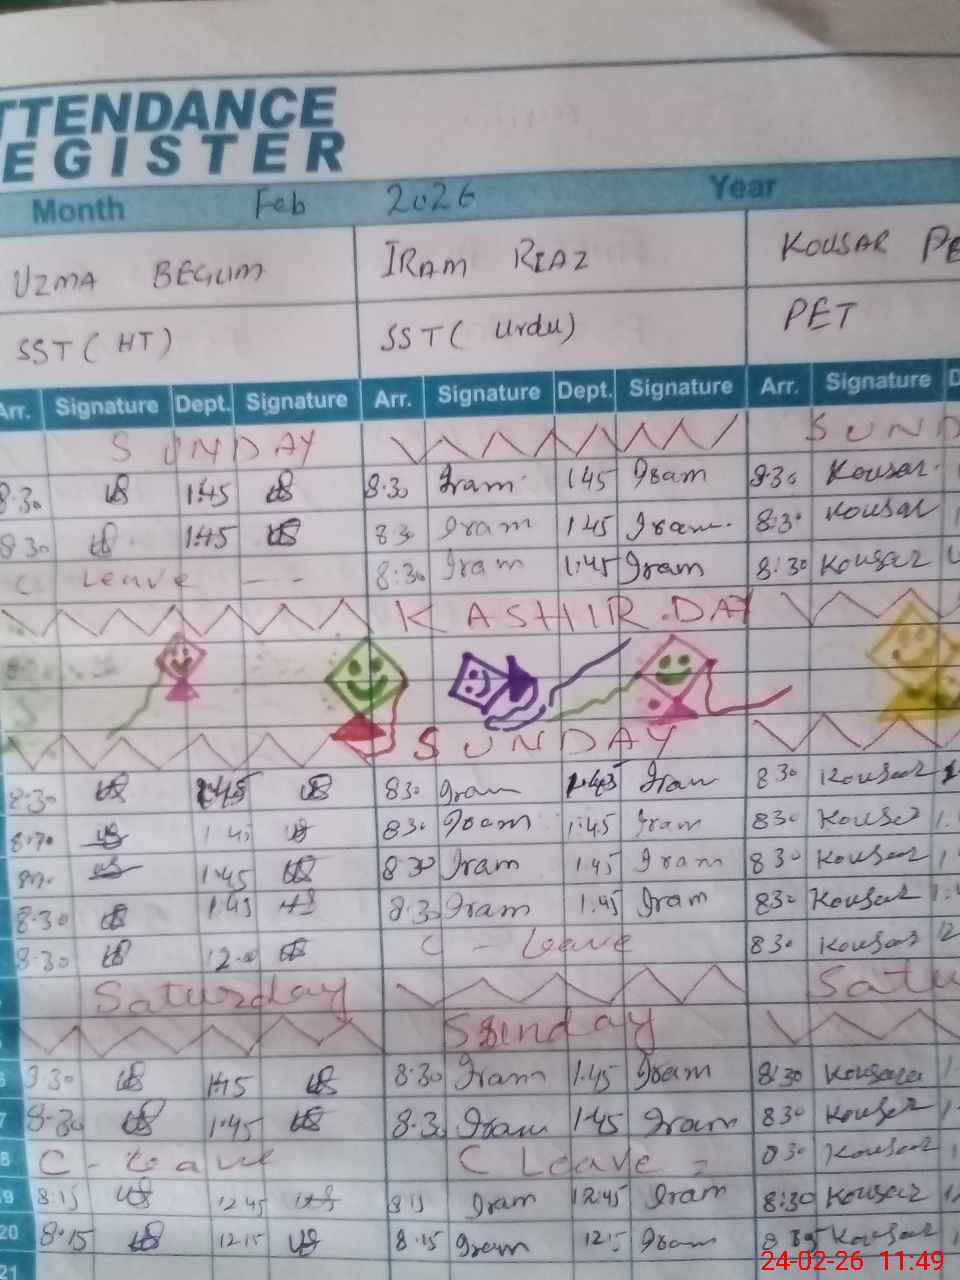 TTENDANCE
EGISTER
Month Feb 2026 Year
UZMA BEGUM IRAM RIAZ KOUSAR PE
SST (HT) SST ( Urdu) PET
Arr. Signature Dept. Signature Arr. Signature Dept. Signature Arr. Signature D
SUNDAY SUND
8.30 1:45 8.30 Iram 1.45 Iram 8.30 Kousar
8 30 1:45 8 3 Iram 1.45 Iram 8:3 Kousar
C Leave - - 8:30 Iram 1:45 Iram 8:30 Kousar
KASHIR DAY
SUNDAY
8.30 1.45 830 Iram 1.45 Iram 8 30 Kousar
1.45 830 Iram 1:45 Iram 830 Kousar
1.45 8.30 Iram 1.45 Iram 8 30 Kousar
8.30 1.45 8.30 Iram 1.45 Iram 830 Kousar
8.30 12.00 C - Leave 830 Kousar 12
Saturday Satu
Sunday
8.30 8.30 Iram 1.45 Iram 8:30 Kousar
8.30 1.45 8.3 Iram 1.45 Iram 830 Kousar
8 C - Leave C Leave 30 Kousar
9 8:15 12 45 8 15 Iram 12.45 Iram 8:30 Kousar
20 8.15 12.15 8.15 Iram 12.15 Iram Kousar
21
24-02-26 11:49